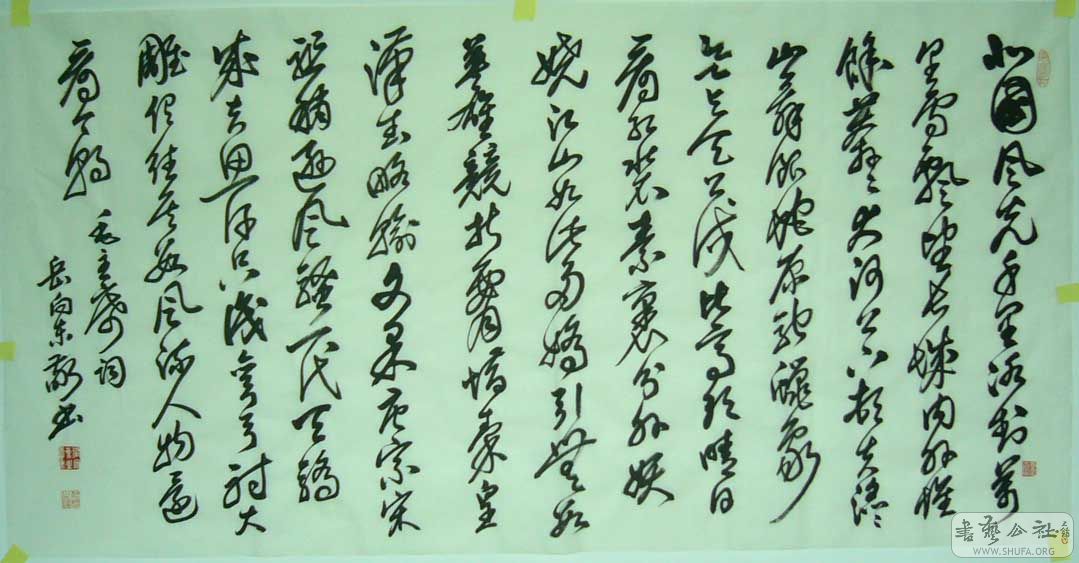 北國风光千里冰封万
里雪飘望长城内外惟
馀莽莽大河上下顿失滔滔
山舞银蛇原驰蜡象
欲与天公试比高须晴日
看红装素裹分外妖
娆江山如此多娇引无数
英雄竞折腰惜秦皇
汉武略输文采唐宗宋
祖稍逊风骚一代天骄
成吉思汗只识弯弓射大
雕俱往矣数风流人物还
看今朝
毛主席词
岳向东敬书
書藝公社
WWW.SHUFA.ORG